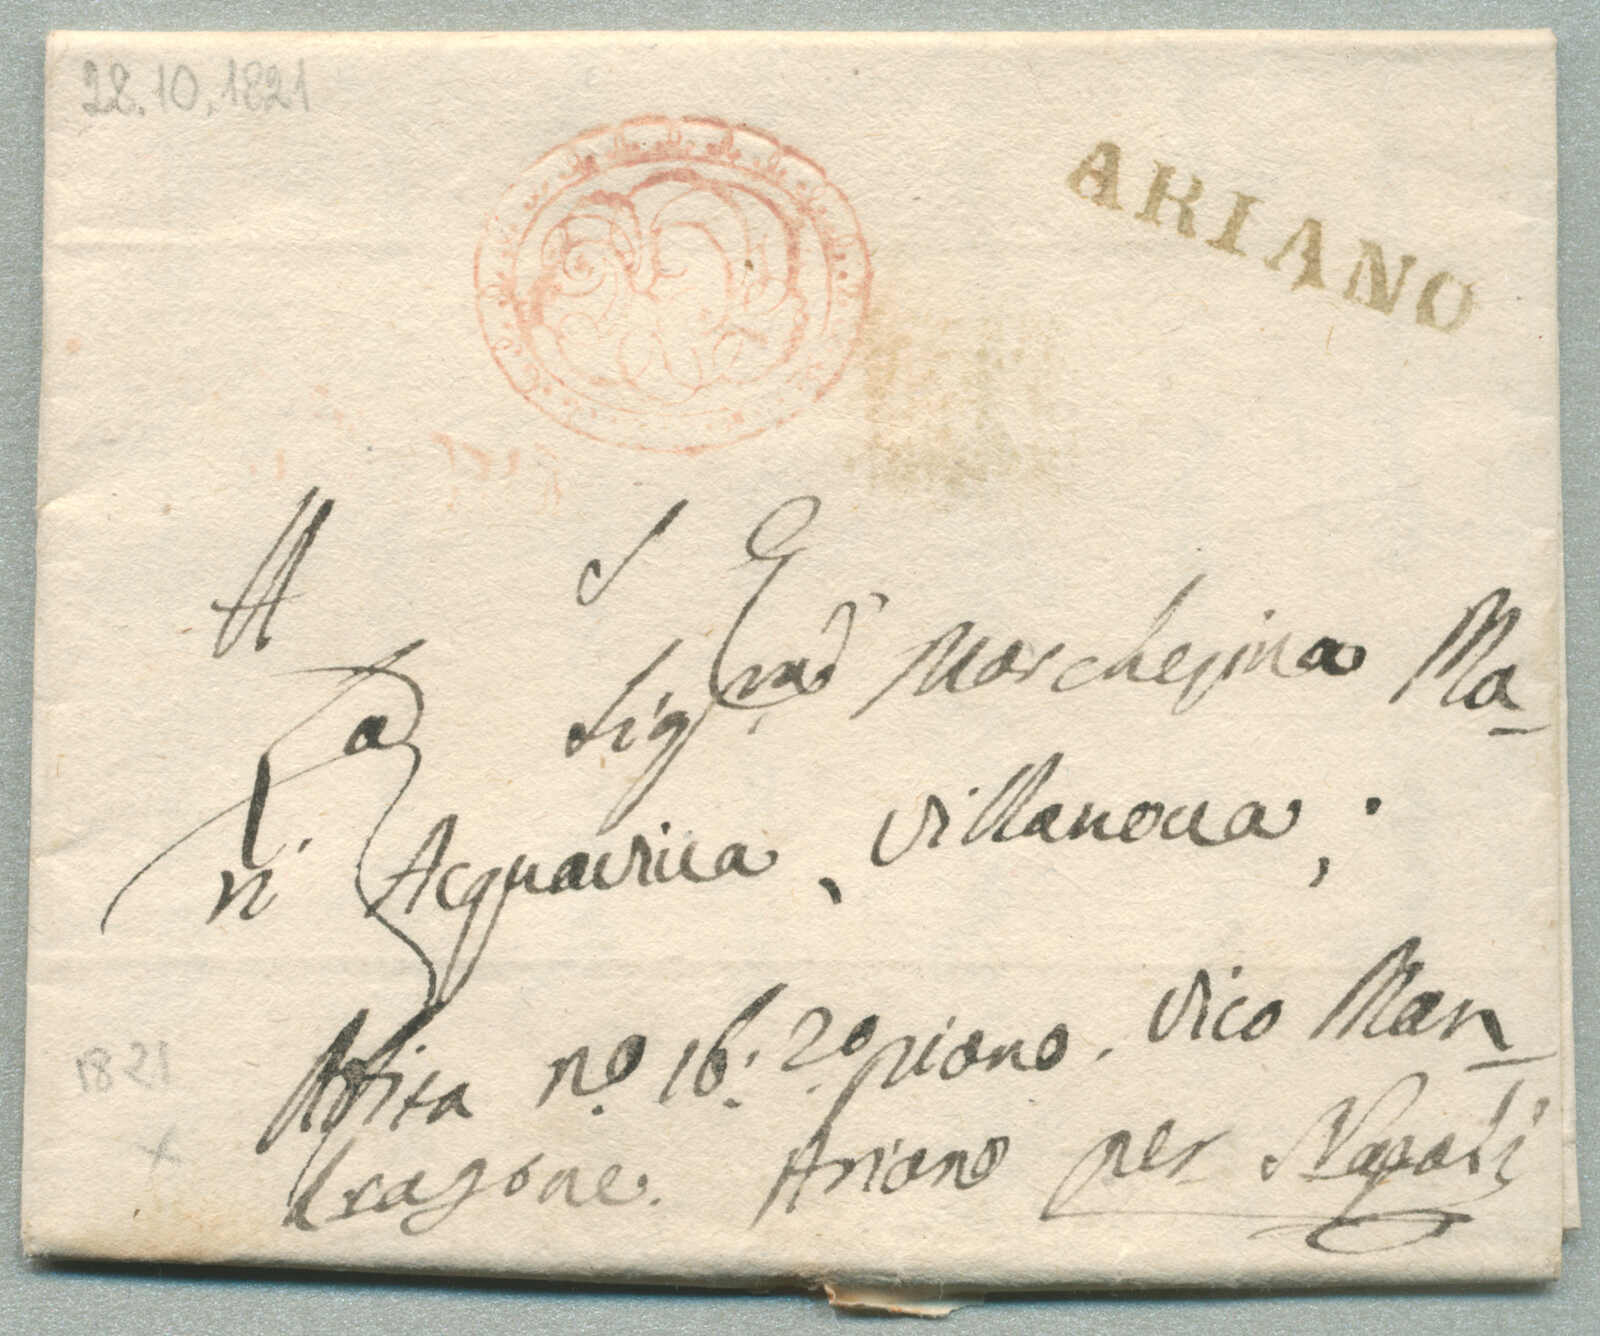 28.10.1821
ARIANO
A S E
La Sig.ra Marchesina Ma-
ri Acquaviva, Villanova,
Abita n.o 16: 2o piano, Vico Man-
dragone. Ariano per Napoli
1821
x